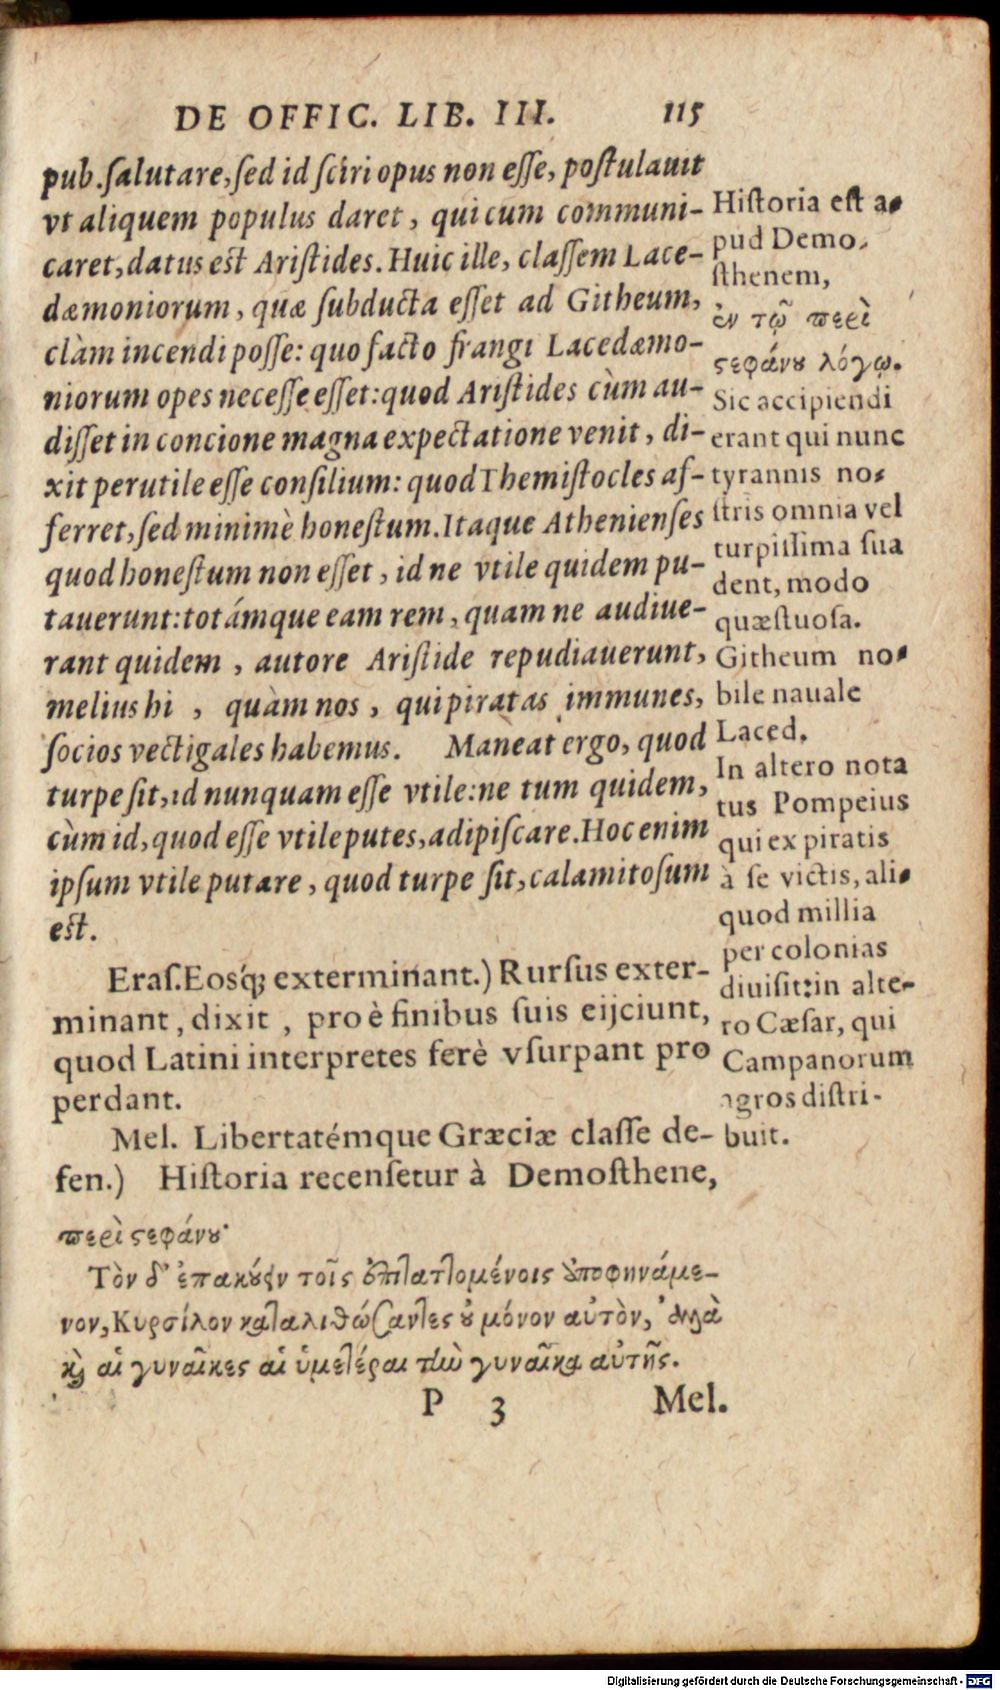 DE OFFIC. LIB. III. 115
pub. ſalutare, ſed id ſciri opus non eſſe, poſtulauit
vt aliquem populus daret, qui cum communi-
caret, datus est Ariſtides. Huic ille, claſſem Lace-
dæmoniorum, quæ ſubducta eſſet ad Githeum,
clàm incendi poſſe: quo facto frangi Lacedæmo-
niorum opes neceſſe eſſet: quod Ariſtides cùm au-
diſſet in concione magna expectatione venit, di-
xit perutile eſſe conſilium: quod Themiſtocles af-
ferret, ſed minimè honeſtum. Itaque Athenienſes
quod honeſtum non eſſet, id ne vtile quidem pu-
tauerunt: totámque eam rem, quam ne audiue-
rant quidem, autore Ariſtide repudiauerunt,
melius hi, quàm nos, qui piratas immunes,
ſocios vectigales habemus. Maneat ergo, quod
turpe ſit, id nunquam eſſe vtile: ne tum quidem,
cùm id, quod eſſe vtile putes, adipiſcare. Hoc enim
ipſum vtile putare, quod turpe ſit, calamitoſum
est.
Eraſ. Eosq́; exterminant.) Rurſus exter-
minant, dixit, pro è finibus ſuis eijciunt,
quod Latini interpretes ferè vſurpant pro
perdant.
Mel. Libertatémque Græciæ claſſe de-
fen.) Hiſtoria recenſetur à Demoſthene,
περὶ ϛεφάνου·
Τὸν δ' ἐπακούειν τοῖς ἐπιταττομένοις ὑποφηνάμε-
νον, Κυρσίλον καταλιθώσαντες οὐ μόνον αὐτὸν, ἀλλὰ
καὶ αἱ γυναῖκες αἱ ὑμετέραι τὴν γυναῖκα αὐτῆς.
P 3 Mel.
Hiſtoria eſt a-
pud Demo-
ſthenem,
ἐν τῷ περὶ
ϛεφάνου λόγῳ.
Sic accipiendi
erant qui nunc
tyrannis no-
ſtris omnia vel
turpiſſima ſua
dent, modo
quæſtuoſa.
Githeum no-
bile nauale
Laced.
In altero nota
tus Pompeius
qui ex piratis
à ſe victis, ali-
quod millia
per colonias
diuiſit: in alte-
ro Cæſar, qui
Campanorum
agros diſtri-
buit.
Digitalisierung gefördert durch die Deutsche Forschungsgemeinschaft - DFG